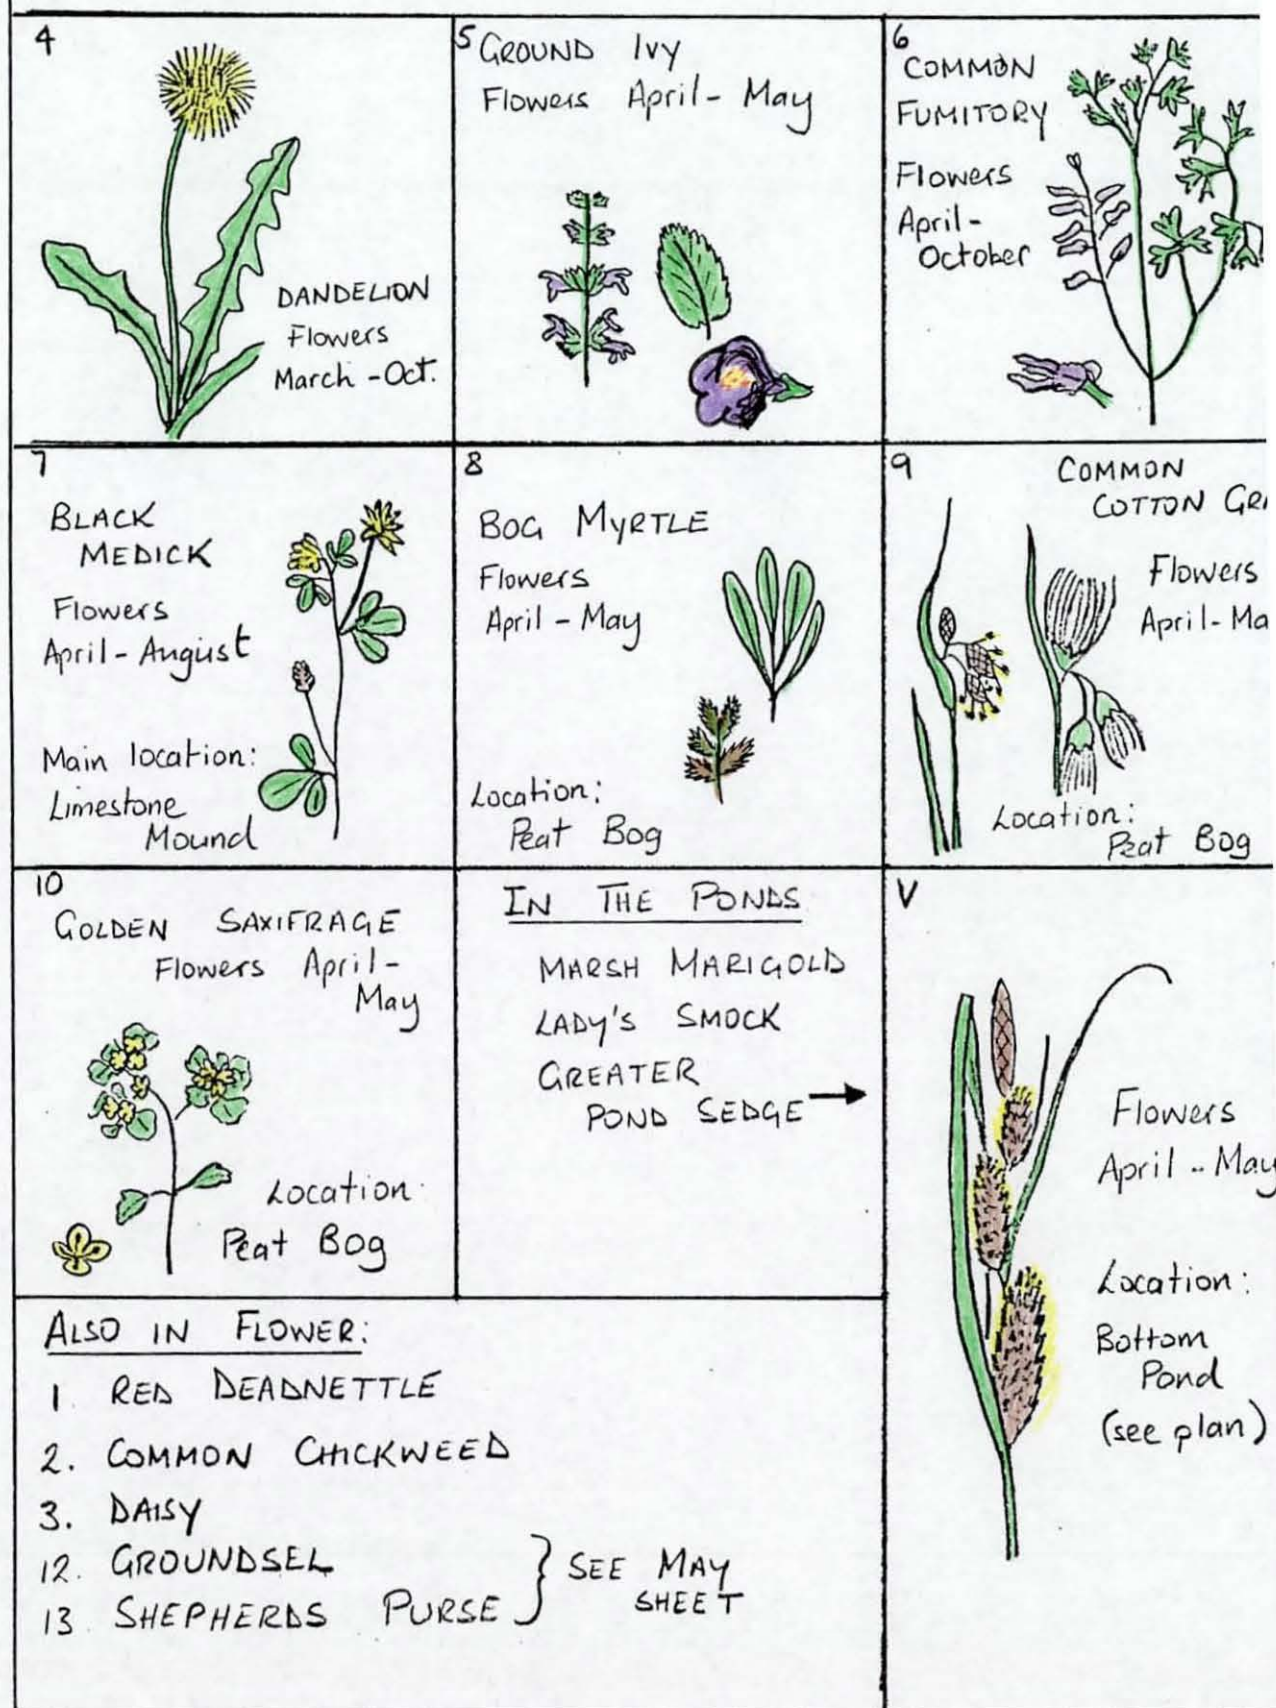 4
DANDELION
Flowers
March - Oct.
5 GROUND IVY
Flowers April - May
6
COMMON
FUMITORY
Flowers
April -
October
7
BLACK
MEDICK
Flowers
April - August
Main location:
Limestone
Mound
8
BOG MYRTLE
Flowers
April - May
Location:
Peat Bog
9
COMMON
COTTON GR
Flowers
April - Ma
Location:
Peat Bog
10
GOLDEN SAXIFRAGE
Flowers April -
May
Location:
Peat Bog
IN THE PONDS
MARSH MARIGOLD
LADY'S SMOCK
GREATER
POND SEDGE →
V
Flowers
April - May
Location:
Bottom
Pond
(see plan)
ALSO IN FLOWER:
1. RED DEADNETTLE
2. COMMON CHICKWEED
3. DAISY
12. GROUNDSEL
13. SHEPHERDS PURSE } SEE MAY
SHEET